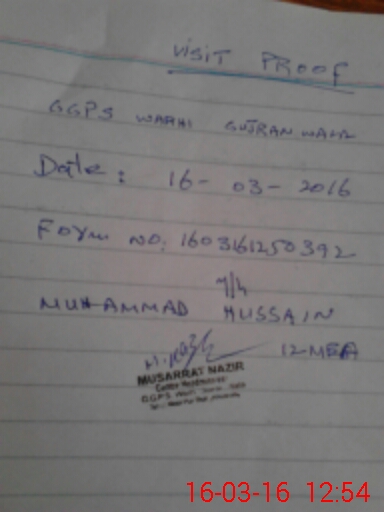 VISIT PROOF
GGPS WARHI GUJRANWALA
Date: 16-03-2016
Form NO: 1603161250392
MUHAMMAD HUSSAIN
12-MEA
MUSARRAT NAZIR
Center Headmistress
G.G.P.S.
16-03-16 12:54